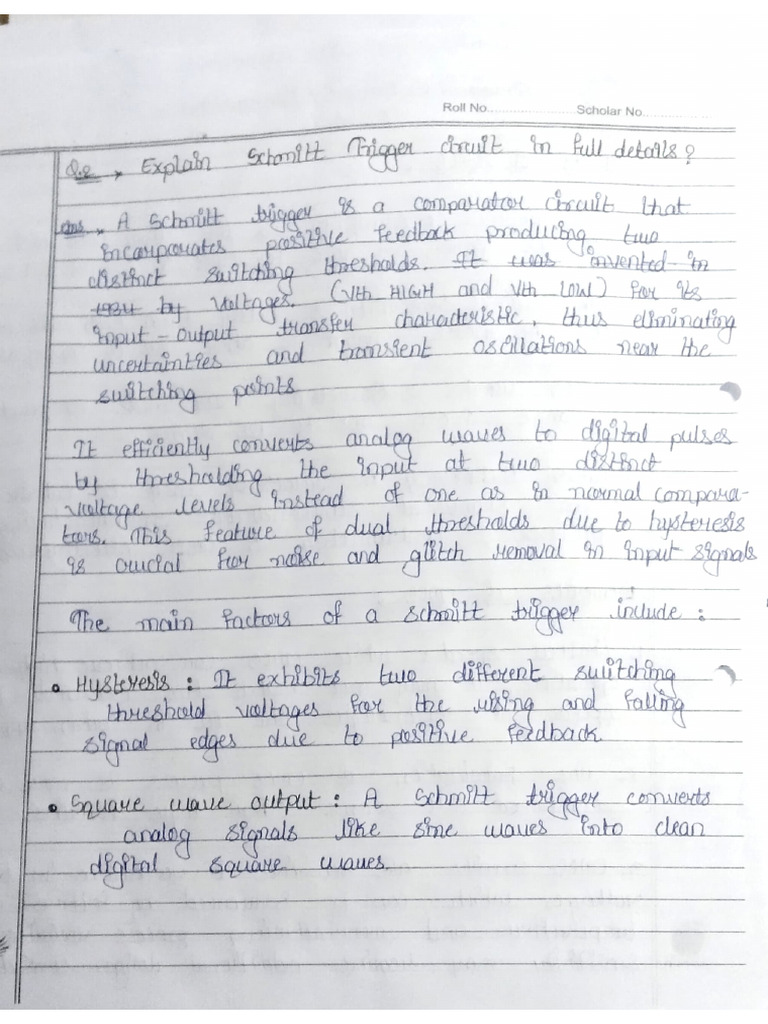 Roll No.................... Scholar No....................
Q.2 → Explain Schmitt Trigger circuit in full details?
Ans. → A Schmitt trigger is a comparator circuit that
incorporates positive feedback producing two
distinct switching thresholds. It was invented in
1934 by voltages. (Vth HIGH and Vth LOW) for its
input-output transfer characteristic, thus eliminating
uncertainties and transient oscillations near the
switching points
It efficiently converts analog waves to digital pulses
by thresholding the input at two distinct
voltage levels instead of one as in normal compara-
tors. This feature of dual thresholds due to hysteresis
is crucial for noise and glitch removal in input signals
The main factors of a schmitt trigger include :
• Hysteresis : It exhibits two different switching
threshold voltages for the rising and falling
signal edges due to positive feedback.
• Square wave output : A Schmitt trigger converts
analog signals like sine waves into clean
digital square waves.